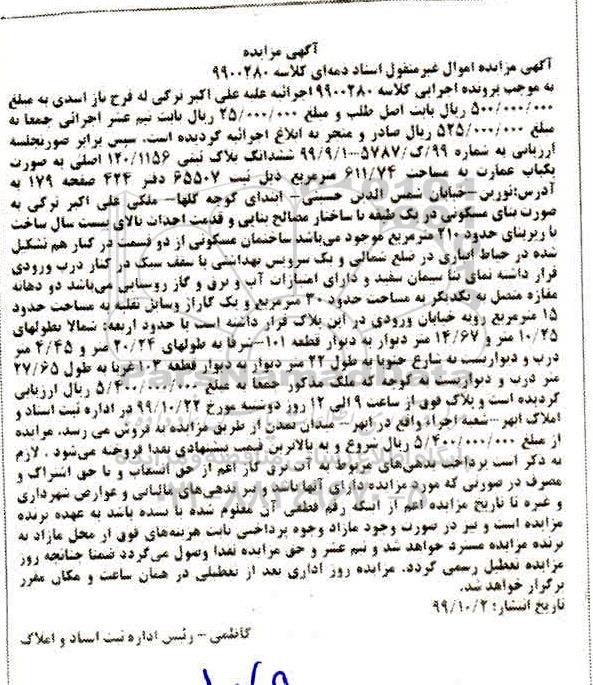 آگهی مزایده
آگهی مزایده اموال غیرمنقول اسناد ذمه‌ای کلاسه ۹۹۰۰۲۸۰
به موجب پرونده اجرایی کلاسه ۹۹۰۰۲۸۰ اجرائیه علیه علی اکبر ترکی له فرج باز اسدی به مبلغ
۵۰۰/۰۰۰/۰۰۰ ریال بابت اصل طلب و مبلغ ۲۵/۰۰۰/۰۰۰ ریال بابت نیم عشر اجرائی جمعا به
مبلغ ۵۲۵/۰۰۰/۰۰۰ ریال صادر و منجر به ابلاغ اجرائیه گردیده است. سپس برابر صورتجلسه
ارزیابی به شماره ۹۹/ک/۵۷۸۷–۹۹/۹/۱ ششدانگ پلاک ثبتی ۱۲۰/۱۱۵۶ اصلی به صورت
یکباب عمارت به مساحت ۶۱۱/۷۴ مترمربع ذیل ثبت ۶۵۵۰۷ دفتر ۴۲۴ صفحه ۱۷۹ به
آدرس:نورین –خیابان شمس الدین حسینی– ابتدای کوچه گلها– ملکی علی اکبر ترکی به
صورت بنای مسکونی در یک طبقه با ساختار مصالح بنایی و قدمت احداث بالای بیست سال ساخت
با زیربنای حدود ۲۱۰ مترمربع موجود می‌باشد ساختمان مسکونی از دو قسمت در کنار هم تشکیل
شده در حیاط انباری در ضلع شمالی و یک سرویس بهداشتی با سقف سبک در کنار درب ورودی
قرار داشته نمای بنا سیمان سفید و دارای امتیازات آب و برق و گاز روستایی می‌باشد دو دهانه
مغازه متصل به یکدیگر به مساحت حدود ۳۰ مترمربع و یک گاراژ وسائل نقلیه به مساحت حدود
۱۵ مترمربع روبه خیابان ورودی در این پلاک قرار داشته است با حدود اربعه: شمالا بطولهای
۱۰/۲۵ متر و ۱۴/۶۷ متر دیوار به دیوار قطعه ۱۰۱–شرقا به طولهای ۲۰/۲۴ متر و ۴/۴۵ متر
درب و دیواریست به شارع جنوبا به طول ۲۲ متر دیوار به دیوار قطعه ۱۰۳ غربا به طول ۲۷/۶۵
متر درب و دیواریست به کوچه که ملک مذکور جمعا به مبلغ ۵/۴۰۰/۰۰۰/۰۰۰ ریال ارزیابی
گردیده است و پلاک فوق از ساعت ۹ الی ۱۲ روز دوشنبه مورخ ۹۹/۱۰/۲۲ در اداره ثبت اسناد و
املاک ابهر–شعبه اجراء واقع در ابهر– میدان تمدن از طریق مزایده به فروش می رسد. مزایده
از مبلغ ۵/۴۰۰/۰۰۰/۰۰۰ ریال شروع و به بالاترین قیمت پیشنهادی نقدا فروخته می‌شود . لازم
به ذکر است پرداخت بدهی‌های مربوط به آب، برق گاز اعم از حق انشعاب و یا حق اشتراک و
مصرف در صورتی که مورد مزایده دارای آنها باشد و نیز بدهی‌های مالیاتی و عوارض شهرداری
و غیره تا تاریخ مزایده اعم از اینکه رقم قطعی آن معلوم شده یا نشده باشد به عهده برنده
مزایده است و نیز در صورت وجود مازاد وجوه پرداختی بابت هزینه‌های فوق از محل مازاد به
برنده مزایده مسترد خواهد شد و نیم عشر و حق مزایده نقدا وصول می‌گردد ضمنا چنانچه روز
مزایده تعطیل رسمی گردد. مزایده روز اداری بعد از تعطیلی در همان ساعت و مکان مقرر
برگزار خواهد شد.
تاریخ انتشار: ۹۹/۱۰/۲
کاظمی – رئیس اداره ثبت اسناد و املاک